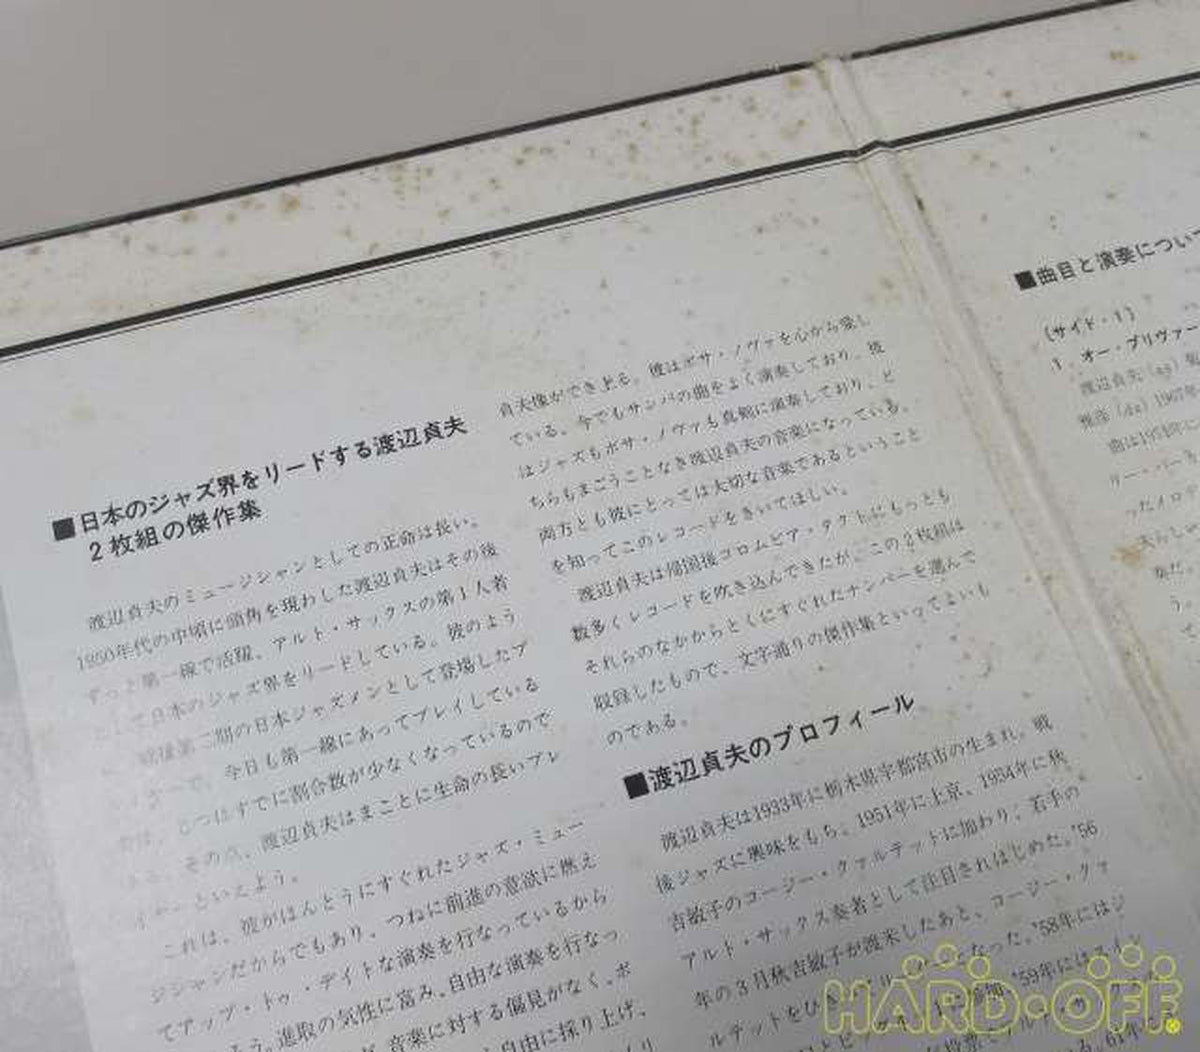 ■日本のジャズ界をリードする渡辺貞夫
2枚組の傑作集
渡辺貞夫のミュージシャンとしての正命は長い。
1950年代の中頃に頭角を現わした渡辺貞夫はその後
ずっと第一線で活躍、アルト・サックスの第1人者
として日本のジャズ界をリードしている。彼のよう
に、戦後第二期の日本ジャズメンとして登場したプ
で、今日も第一線にあってプレイしている
つはすでに割合数が少なくなっているので
その点、渡辺貞夫はまことに生命の長いプレ
イヤーといえよう。
これは、彼がほんとうにすぐれたジャズ・ミュー
ジシャンだからでもあり、つねに前進の意欲に燃え
てアップ・トゥ・デイトな演奏を行なっているから
進取の気性に富み、自由な演奏を行なっ
音楽に対する偏見がなく、ボ
自由に採り上げ、
貞夫像ができ上る。彼はボサ・ノヴァを心から愛し
ている。今でもサンバの曲をよく演奏しており、彼
はジャズもボサ・ノヴァも真剣に演奏しており、ど
ちらもまごうことなき渡辺貞夫の音楽になっている。
両方とも彼にとっては大切な音楽であるということ
を知ってこのレコードをきいてほしい。
渡辺貞夫は帰国後コロムビア・タクトにもっとも
数多くレコードを吹き込んできたが、この2枚組は
それらのなかからとくにすぐれたナンバーを選んで
収録したもので、文字通りの傑作集といってよいも
のである。
■渡辺貞夫のプロフィール
渡辺貞夫は1933年に栃木県宇都宮市の生まれ。戦
後ジャズに興味をもち、1951年に上京、1954年に秋
吉敏子のコージー・クァルテットに加わり、若手の
アルト・サックス奏者として注目されはじめた。'56
年の3月秋吉敏子が渡米したあと、コージー・クァ
ルテットをひき なった。'58年にはジ
'59年にはスイン
■曲目と演奏につい
〔サイド・1〕
1．オー・プリヴァー
渡辺貞夫(as)
(ds) 1967年
曲は1951年に
リー・パーカ
ったメロデ
HARD・OFF